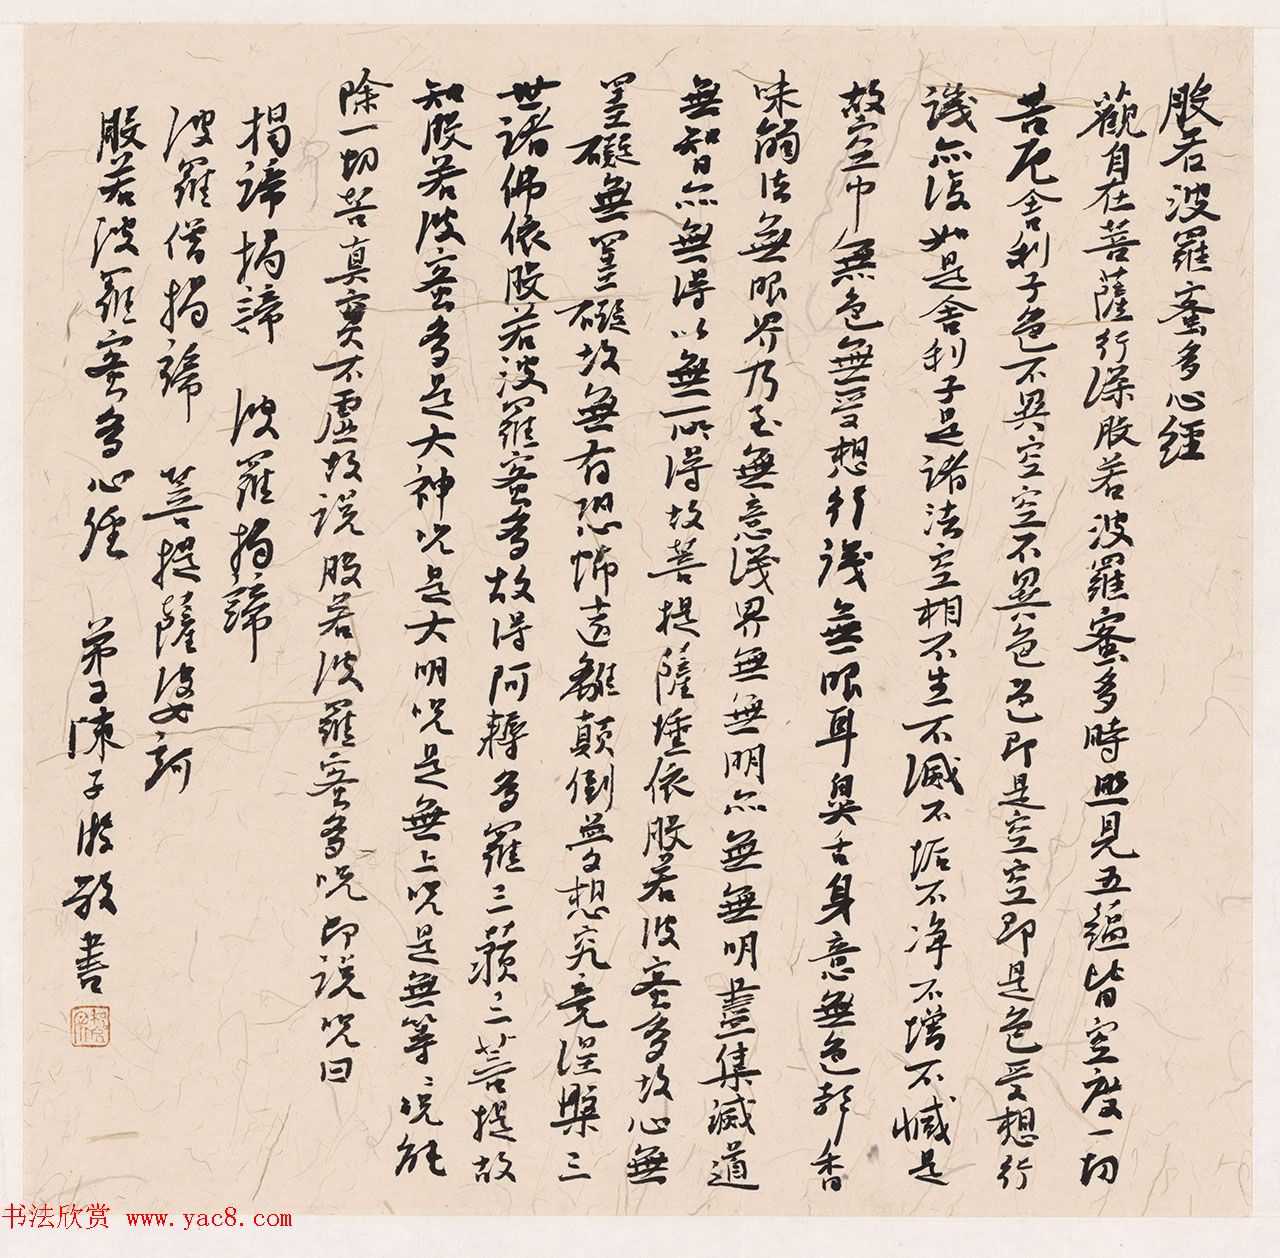 般若波羅蜜多心經
觀自在菩薩行深般若波羅蜜多時照見五蘊皆空度一切
苦厄舍利子色不異空空不異色色即是空空即是色受想行
識亦復如是舍利子是諸法空相不生不滅不垢不淨不增不減是
故空中無色無受想行識無眼耳鼻舌身意無色聲香
味觸法無眼界乃至無意識界無無明亦無無明盡集滅道
無智亦無得以無所得故菩提薩埵依般若波蜜多故心無
罣礙無罣礙故無有恐怖遠離顛倒夢想究竟涅槃三
世諸佛依般若波羅蜜多故得阿耨多羅三藐三菩提故
知般若波蜜多是大神咒是大明咒是無上咒是無等々咒能
除一切苦真實不虛故說般若波羅蜜多咒即說咒曰
揭諦揭諦 波羅揭諦
波羅僧揭諦 菩提薩婆訶
般若波羅蜜多心經 弟子陳子游敬書
书法欣赏 www.yac8.com